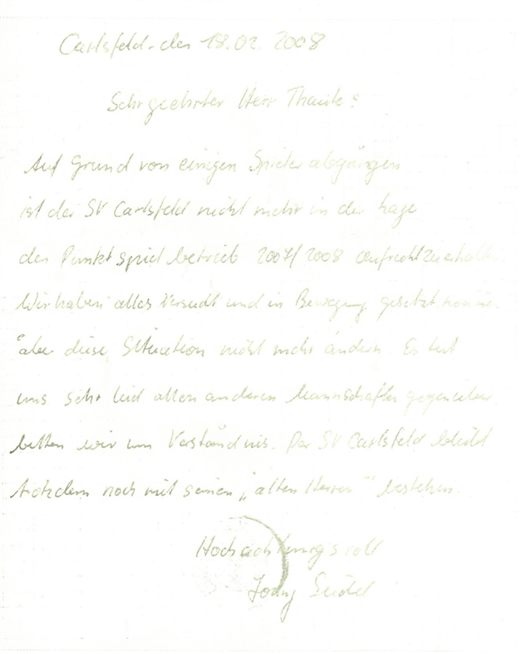 Carlsfeld, den 18.02.2008
Sehr geehrter Herr
Auf Grund von einigen Spielerabgängen
ist der SV Carlsfeld nicht mehr in der Lage
den Punktspielbetrieb 2007/2008 aufrechtzuerhalten
Wir haben alles versucht und in Bewegung gesetzt
aber diese Situation nicht mehr ändern. Es tut
uns sehr leid allen anderen Mannschaften gegenüber
bitten wir um Verständnis. Der SV Carlsfeld bleibt
trotzdem noch mit seinen "alten Herren" bestehen.
Hochachtungsvoll
Seidel